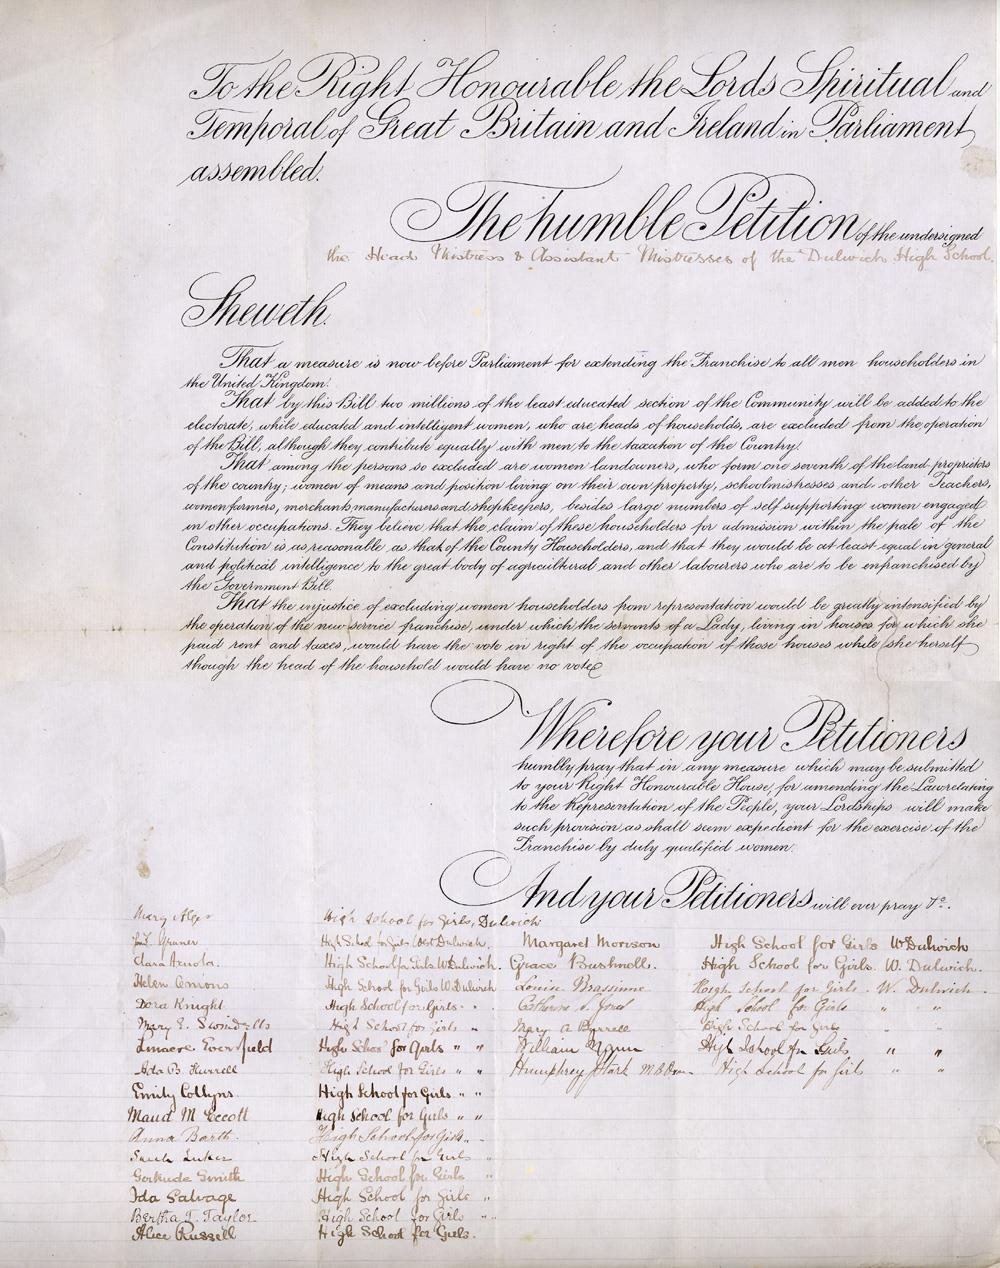 To the Right Honourable the Lords Spiritual and
Temporal of Great Britain and Ireland in Parliament
assembled.
The humble Petition of the undersigned
the Head Mistress & Assistant Mistresses of the Dulwich High School.
Sheweth.
That a measure is now before Parliament for extending the Franchise to all men householders in
the United Kingdom.
That by this Bill two millions of the least educated section of the Community will be added to the
electorate, while educated and intelligent women, who are heads of households, are excluded from the operation
of the Bill, although they contribute equally with men to the taxation of the Country.
That among the persons so excluded are women landowners, who form one seventh of the land proprietors
of the country; women of means and position living on their own property, schoolmistresses and other Teachers,
women farmers, merchants, manufacturers and shopkeepers, besides large numbers of self supporting women engaged
in other occupations. They believe that the claim of these householders for admission within the pale of the
Constitution is as reasonable as that of the County Householders, and that they would be at least equal in general
and political intelligence to the great body of agricultural and other labourers who are to be enfranchised by
the Government Bill.
That the injustice of excluding women householders from representation would be greatly intensified by
the operation of the new service franchise, under which the servants of a Lady, living in houses for which she
paid rent and taxes, would have the vote in right of the occupation of those houses while she herself
though the head of the household would have no vote
Wherefore your Petitioners
humbly pray that in any measure which may be submitted
to your Right Honourable House, for amending the Law relating
to the Representation of the People, your Lordships will make
such provision as shall seem expedient for the exercise of the
Franchise by duly qualified women.
And your Petitioners will ever pray &c.
Mary Alger High School for Girls, Dulwich
Gruner High School for Girls West Dulwich. Margaret Morison High School for Girls W. Dulwich
Clara Arnola. High School for Girls W. Dulwich. Grace Bushnell. High School for Girls. W. Dulwich.
Helen High School for Girls W. Dulwich Louise High School for Girls. W. Dulwich
Dora Knight High School for Girls " " Catherine High School for Girls " "
Mary E. Swindells High School for Girls " " Mary A High School for Girls " "
Linacre Eversfield High School for Girls " " William High School for Girls " "
Ada B. Hurrell High School for Girls " " Humphrey High School for Girls " "
Emily Collyns. High School for Girls " "
Maud M Eccott High School for Girls " "
Anna Barth. High School for Girls " "
High School for Girls "
Gertrude Smith High School for Girls "
Ida Salvage High School for Girls "
Bertha T. Taylor High School for Girls " "
Alice Russell High School for Girls.